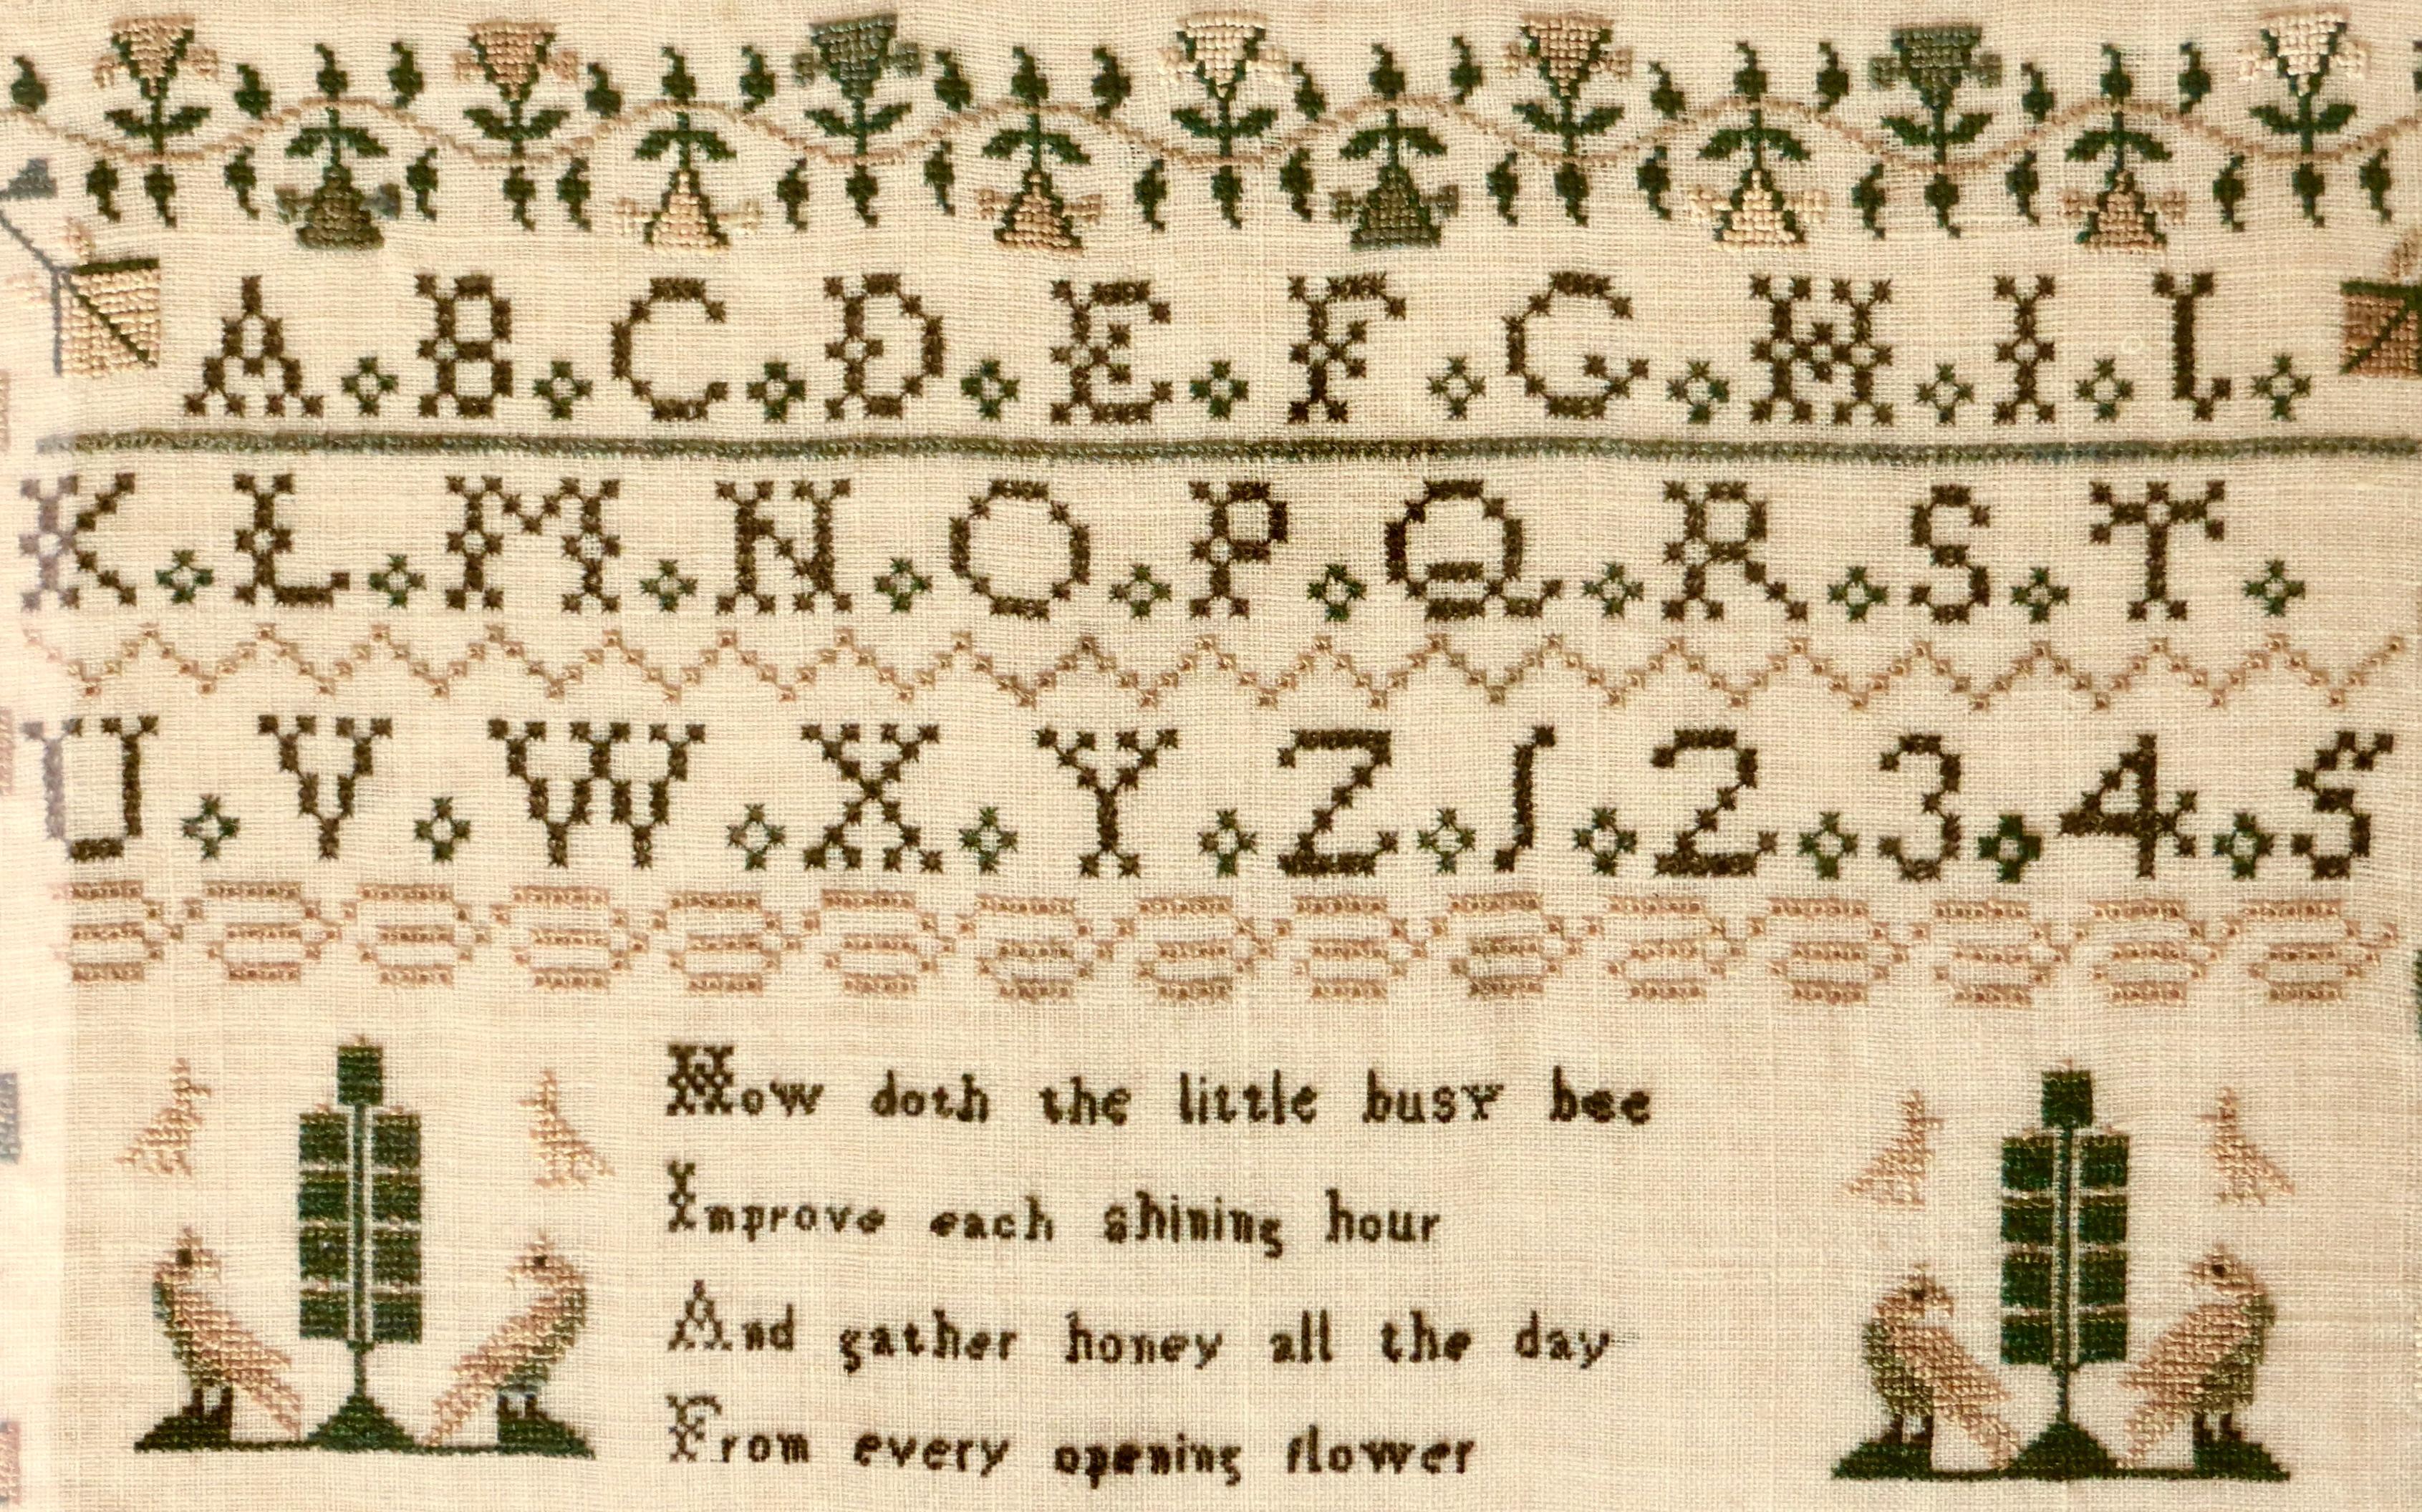 A B C D E F G H I J
K L M N O P Q R S T
U V W X Y Z 1 2 3 4 5
How doth the little busy bee
Improve each shining hour
And gather honey all the day
From every opening flower